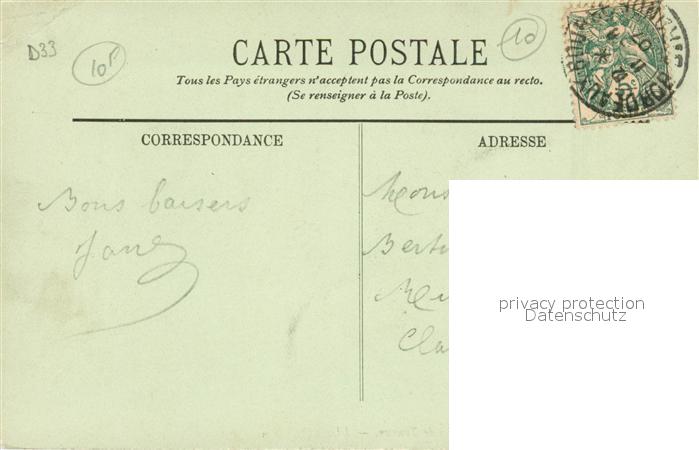 D33
10F
10
CARTE POSTALE
Tous les Pays étrangers n'acceptent pas la Correspondance au recto.
(Se renseigner à la Poste).
BORDEAUX
CORRESPONDANCE
ADRESSE
Bons baisers
Mons
Bert
Cla
privacy protection
Datenschutz